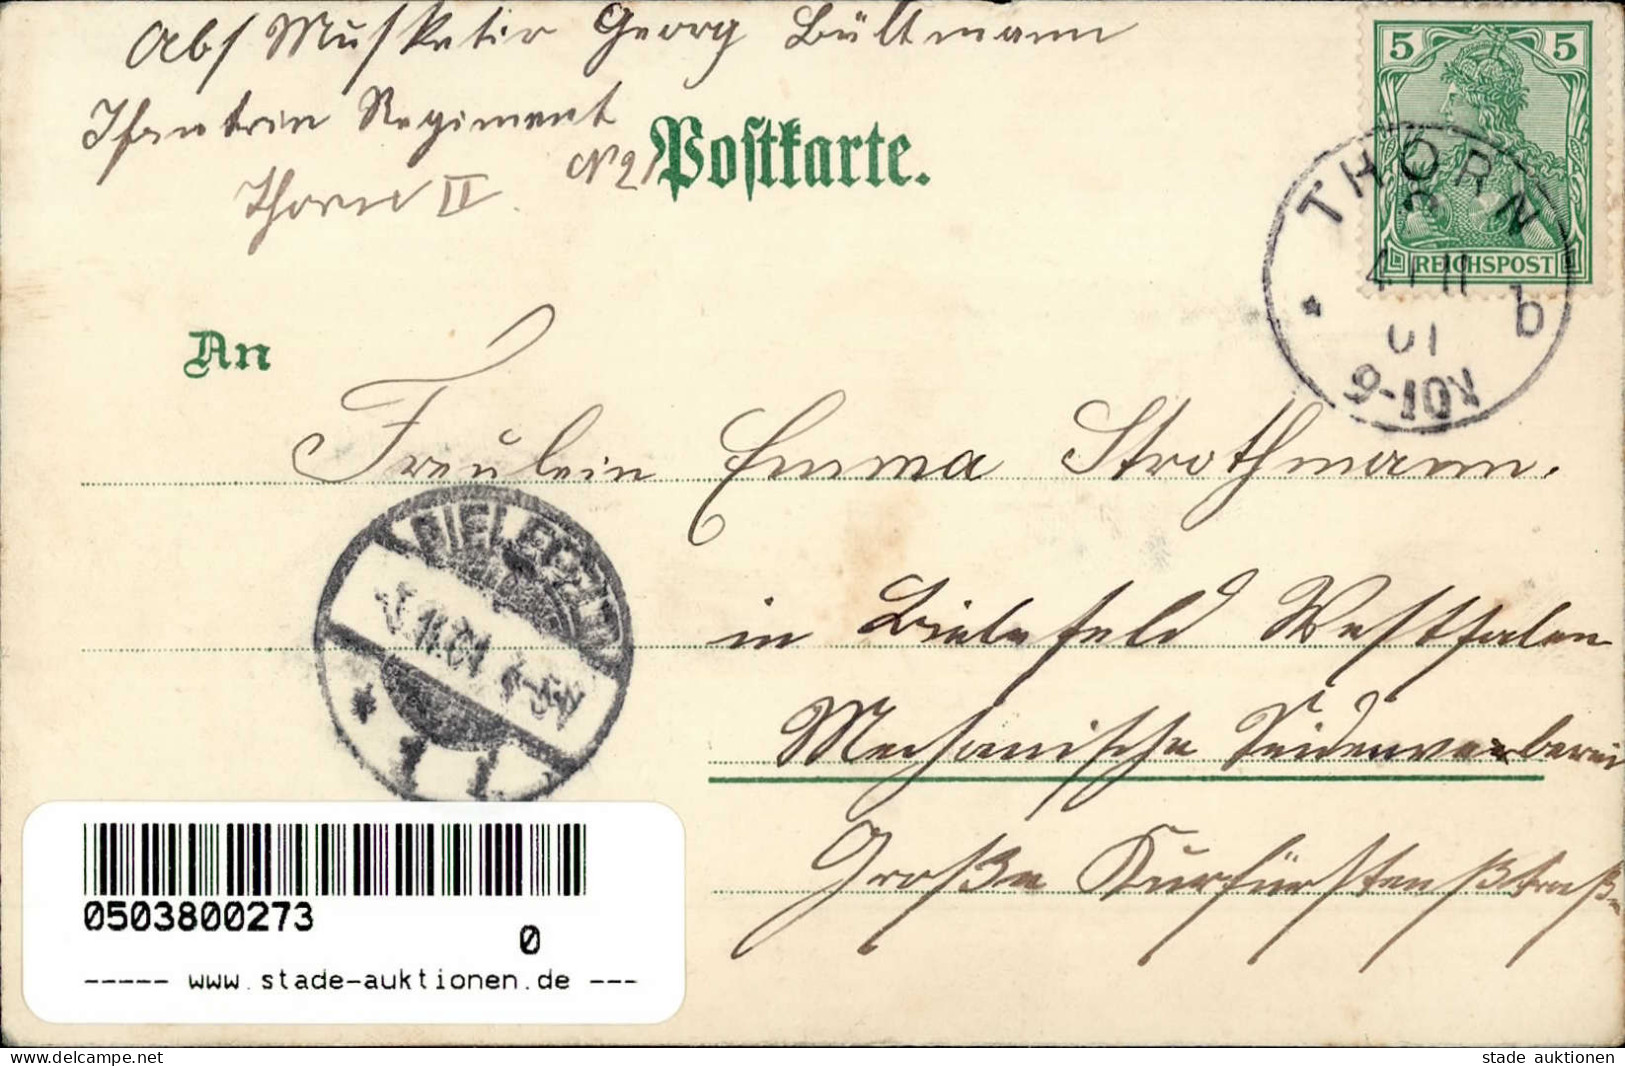 Abs Musketir Georg Bültmann
Ifantrin Regiment
N 21
Thorn II.
Postkarte.
5 5
REICHSPOST
THORN
4 11
01
9-10V
* b
An
Freulein Emma Strothmann.
BIELEFELD
11.01
* 1 1
in Bielefeld Westfalen
Mechanische Seidenweberei
Große Kurfürstenßtraß
0503800273
0
----- www.stade-auktionen.de ---
www.delcampe.net
stade auktionen